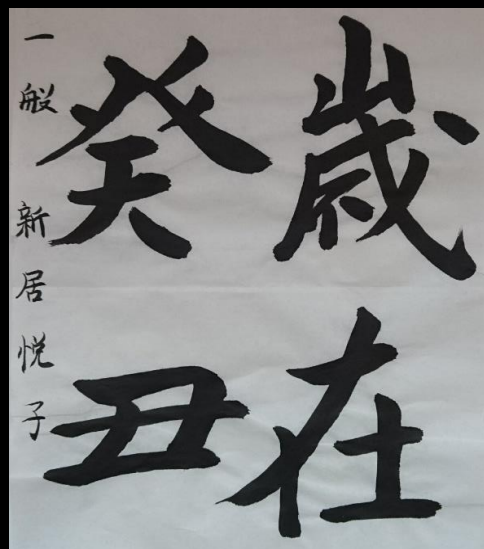 歳在
癸丑
一般 新居悦子